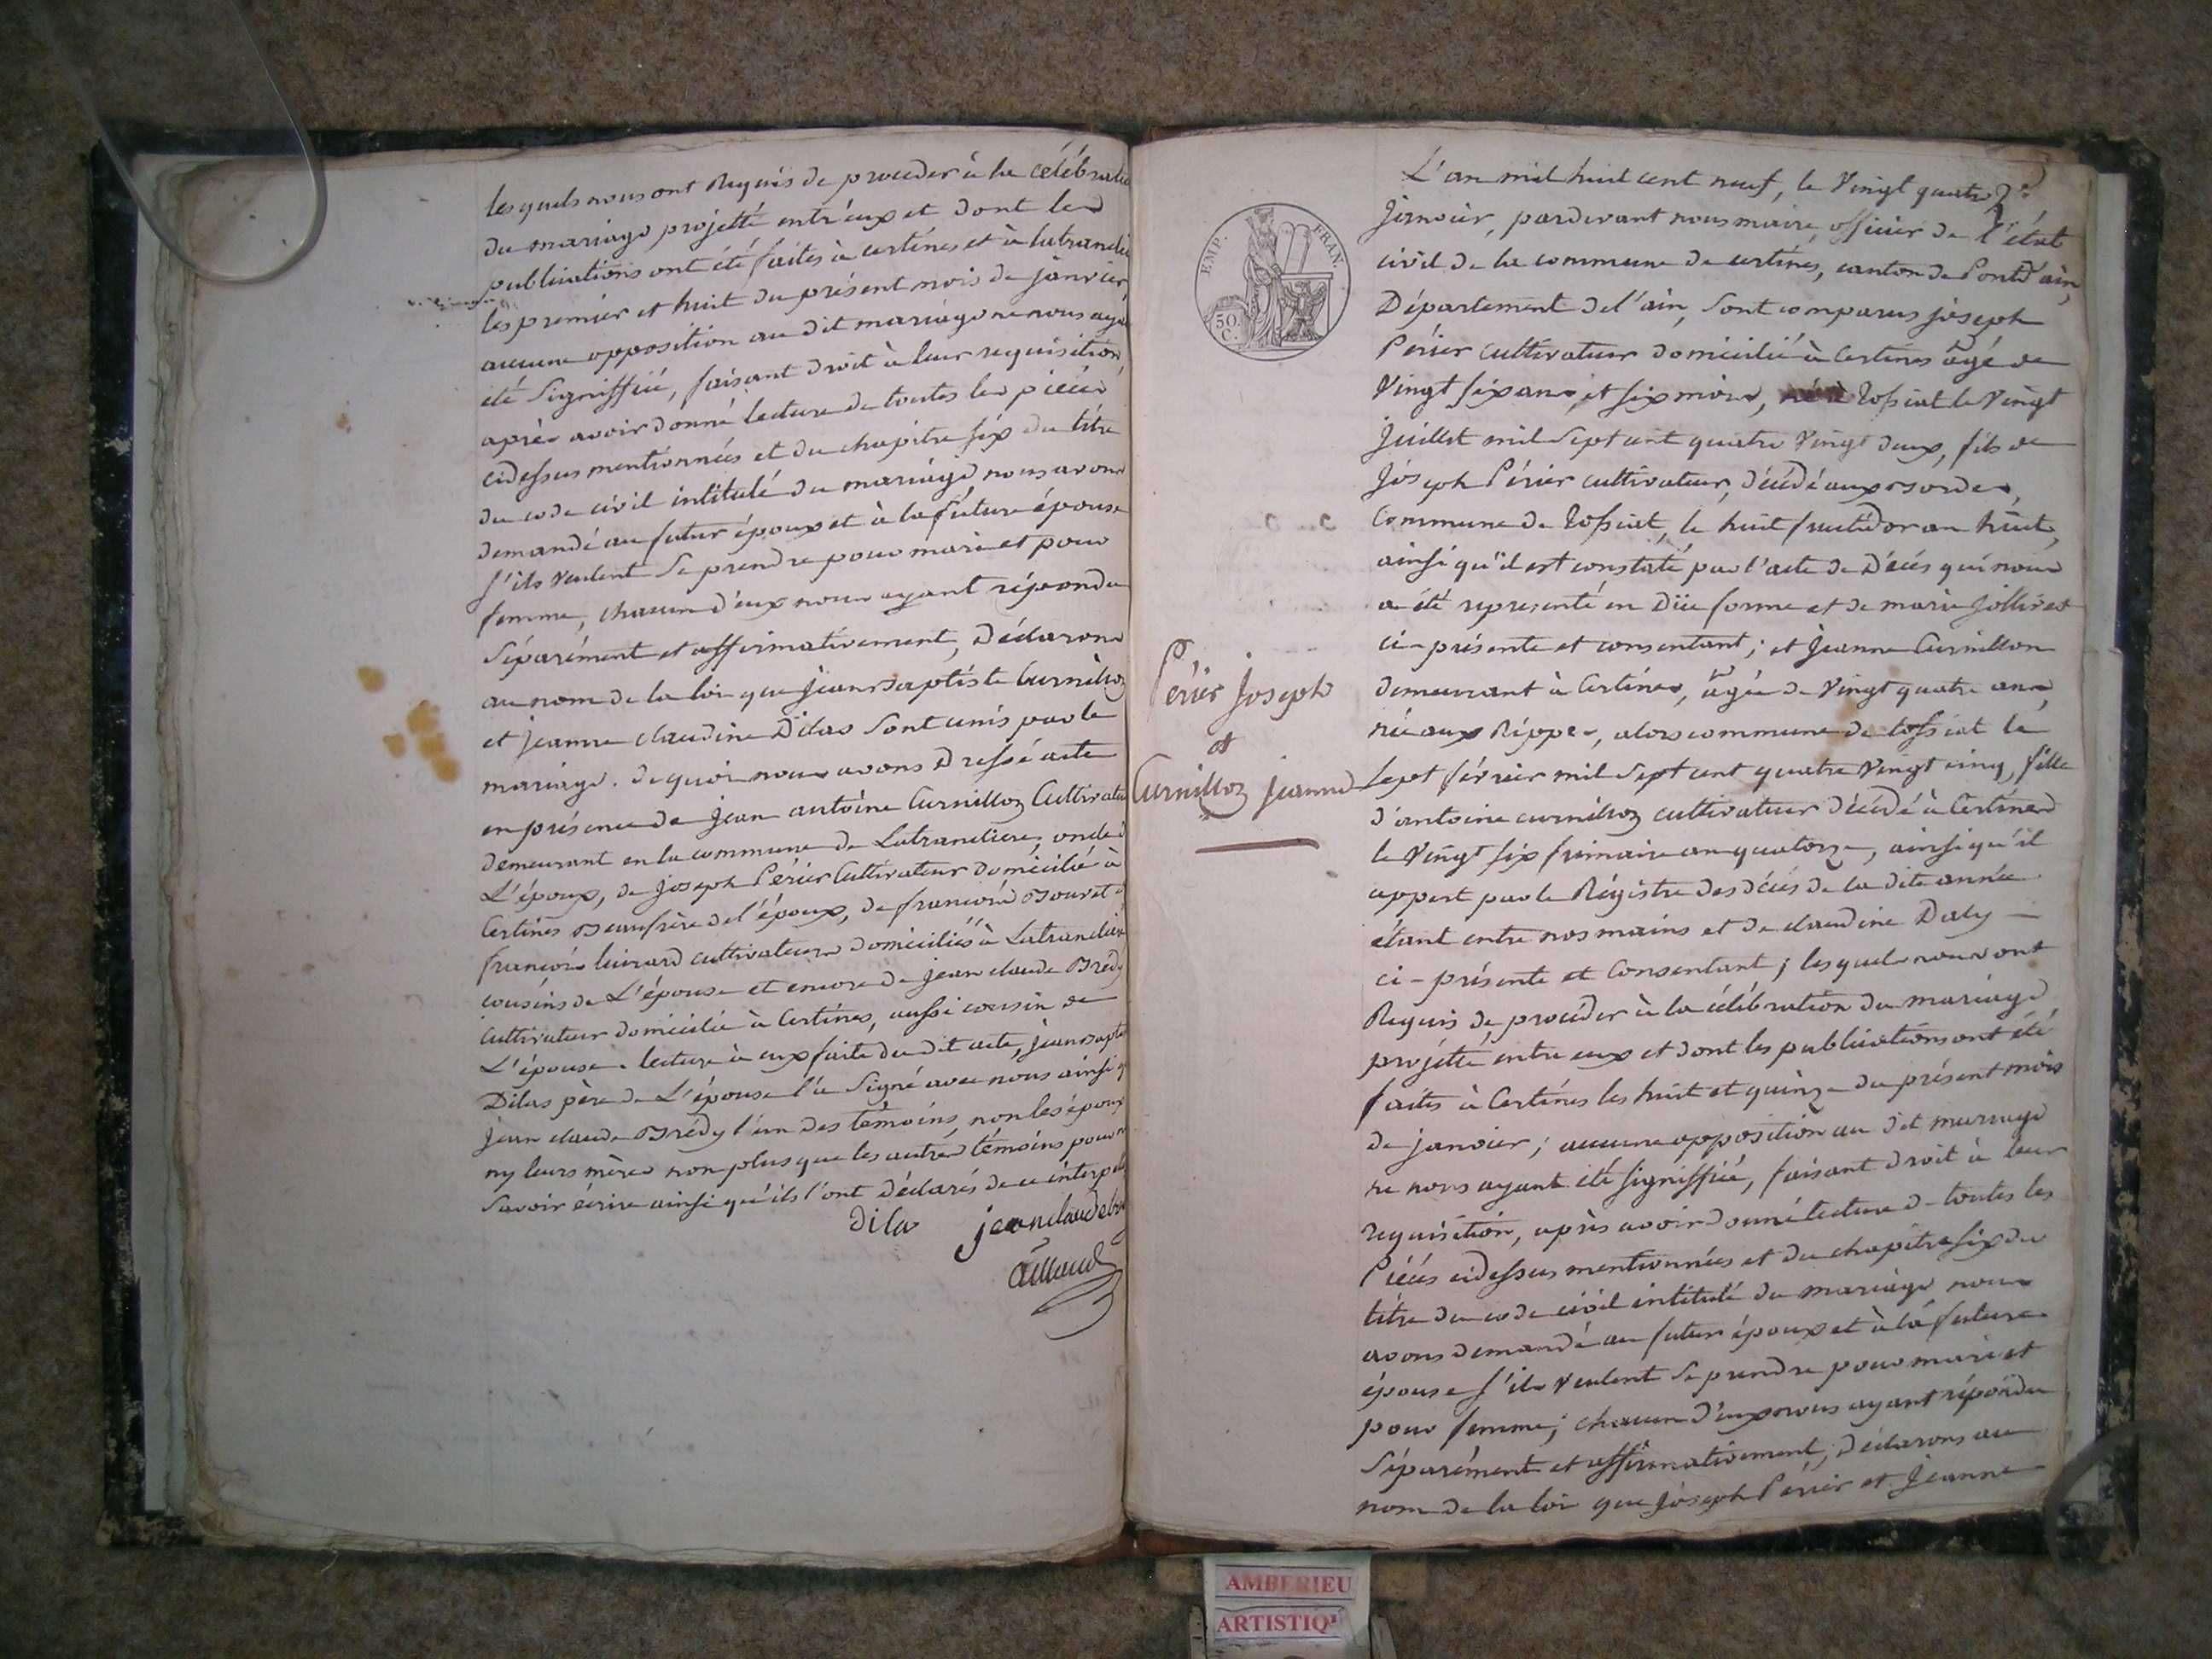 les quels nous ont Requis de proceder à la célébratio
du mariage projetté entr'eux et dont les
publications ont été faites à certines et à latranclie
les premier et huit du présent mois de janvier,
aucune opposition au dit mariage ne nous aya
été Signiffiée, faisant droit à leur requisition
après avoir donné lecture de toutes les pièces
cidessus mentionnées et du chapitre six du titre
du code civil intitulé du mariage nous avons
demandé au futur époux et à la future épouse
s'ils veulent se prendre pour mari et pour
femme, chacun d'eux nous ayant répondu
Séparément et affirmativement, Déclarons
au nom de la loi que jean Baptiste Curnilloz
et jeanne claudine Dilas sont unis par le
mariage. de quoi nous avons Dressé acte
en présence de jean antoine Curnilloz Cultivateu
demeurant en la commune de Latrancliere, oncle d
L'époux, de joseph Périer Cultivateur domicilié à
Certines Beaufrère de l'époux, de françois Bouvet
françois livrard cultivateurs domiciliés à Latrancliere
cousins de L'épouse et encore de jean claude Brédy
cultivateur domicilié à Certines, aussi cousin de
L'épouse. lecture à eux faite du dit acte, jean Bapt
Dilas père de L'épouse l'a Signé avec nous ainsi q
jean claude Brédy l'un des témoins, non les époux
ny leurs mères non plus que les autres témoins pour n
Savoir écrire ainsi qu'ils l'ont Déclarés de ce interpel
dila jean claude br
aillaud
EMP. FRAN.
50.
C.
Périer Joseph
et
Curnilloz jeanne
L'an mil huit cent neuf, le Vingt quatre
janvier, pardevant nous maire, officier de l'état
civil de la commune de certines, canton de Pontd'ain,
Département de l'ain, sont comparus joseph
Périer cultivateur domicilié à Certines âgé de
Vingt six ans et six mois, né à Tossiat le Vingt
juillet mil Sept cent quatre Vingt deux, fils de
joseph Périer cultivateur, décédé aux Bordes,
commune de Tossiat, le huit fructidor an huit,
ainsi qu'il est constaté par l'acte de Décès qui nous
a été representé en Düe forme et de marie jollivet
ci-présente et consentant; et jeanne Curnillon
demeurant à Certines, âgée de Vingt quatre ans,
née aux Rippes, alors commune de tossiat le
Sept février mil Sept cent quatre Vingt cinq, fille
d'antoine curnilloz cultivateur décédé à Certines
le Vingt six frimaire an quatorze, ainsi qu'il
appert par le Régistre des décès de la dite année
étant entre nos mains et de claudine Daly
ci-présente et Consentant; les quels nous ont
Requis de procéder à la célébration du mariage
projetté entre eux et dont les publications ont été
faites à Certines les huit et quinze du présent mois
de janvier; aucune opposition au dit mariage
ne nous ayant été signiffiée, faisant droit à leur
requisition, après avoir donné lecture de toutes les
Pièces cidessus mentionnées et du chapitre six du
titre du code civil intitulé du mariage nous
avons demandé au futur époux et à la future
épouse s'ils veulent se prendre pour mari et
pour femme; chacun d'eux nous ayant répondu
Séparément et affirmativement, déclarons au
nom de la loi que joseph Périer et jeanne
AMBERIEU
ARTISTIQ